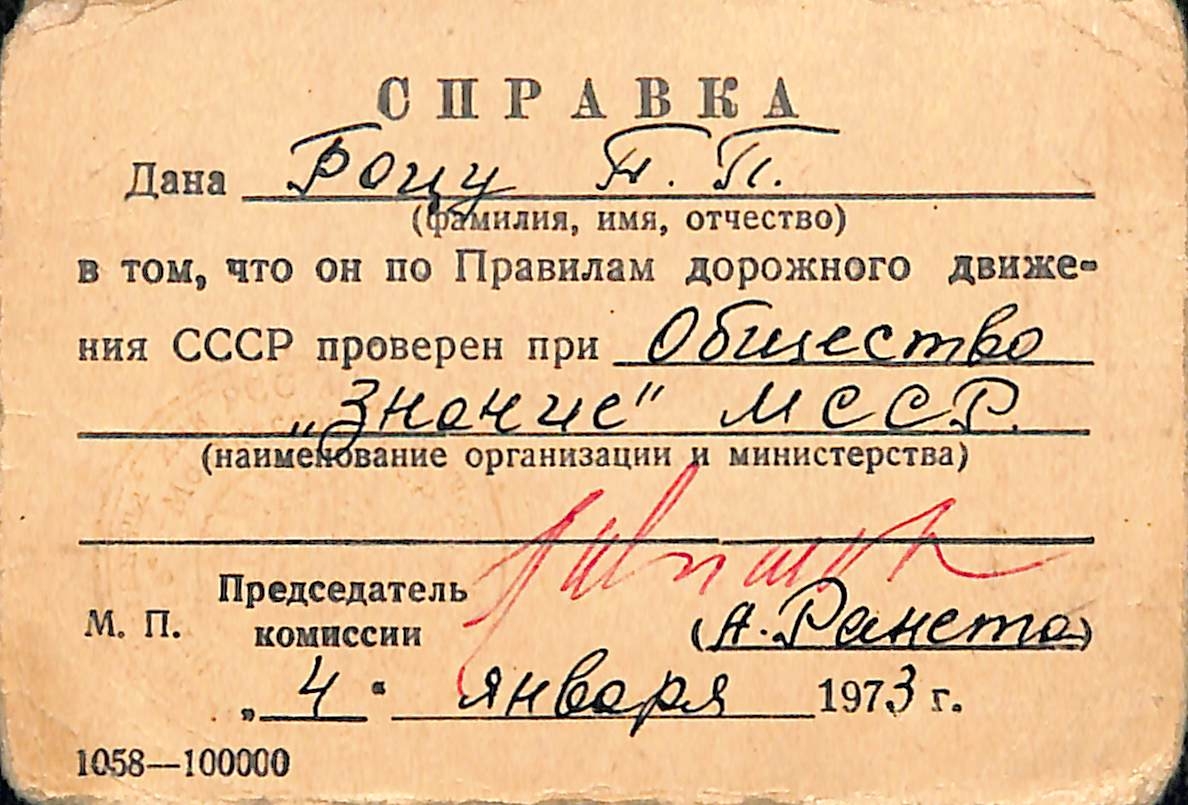 СПРАВКА
Дана Рошу П. П.
(фамилия, имя, отчество)
в том, что он по Правилам дорожного движе-
ния СССР проверен при Общество
„Знание" МССР.
(наименование организации и министерства)
Председатель
М. П. комиссии (А. Ранета)
„4" января 1973 г.
1058—100000